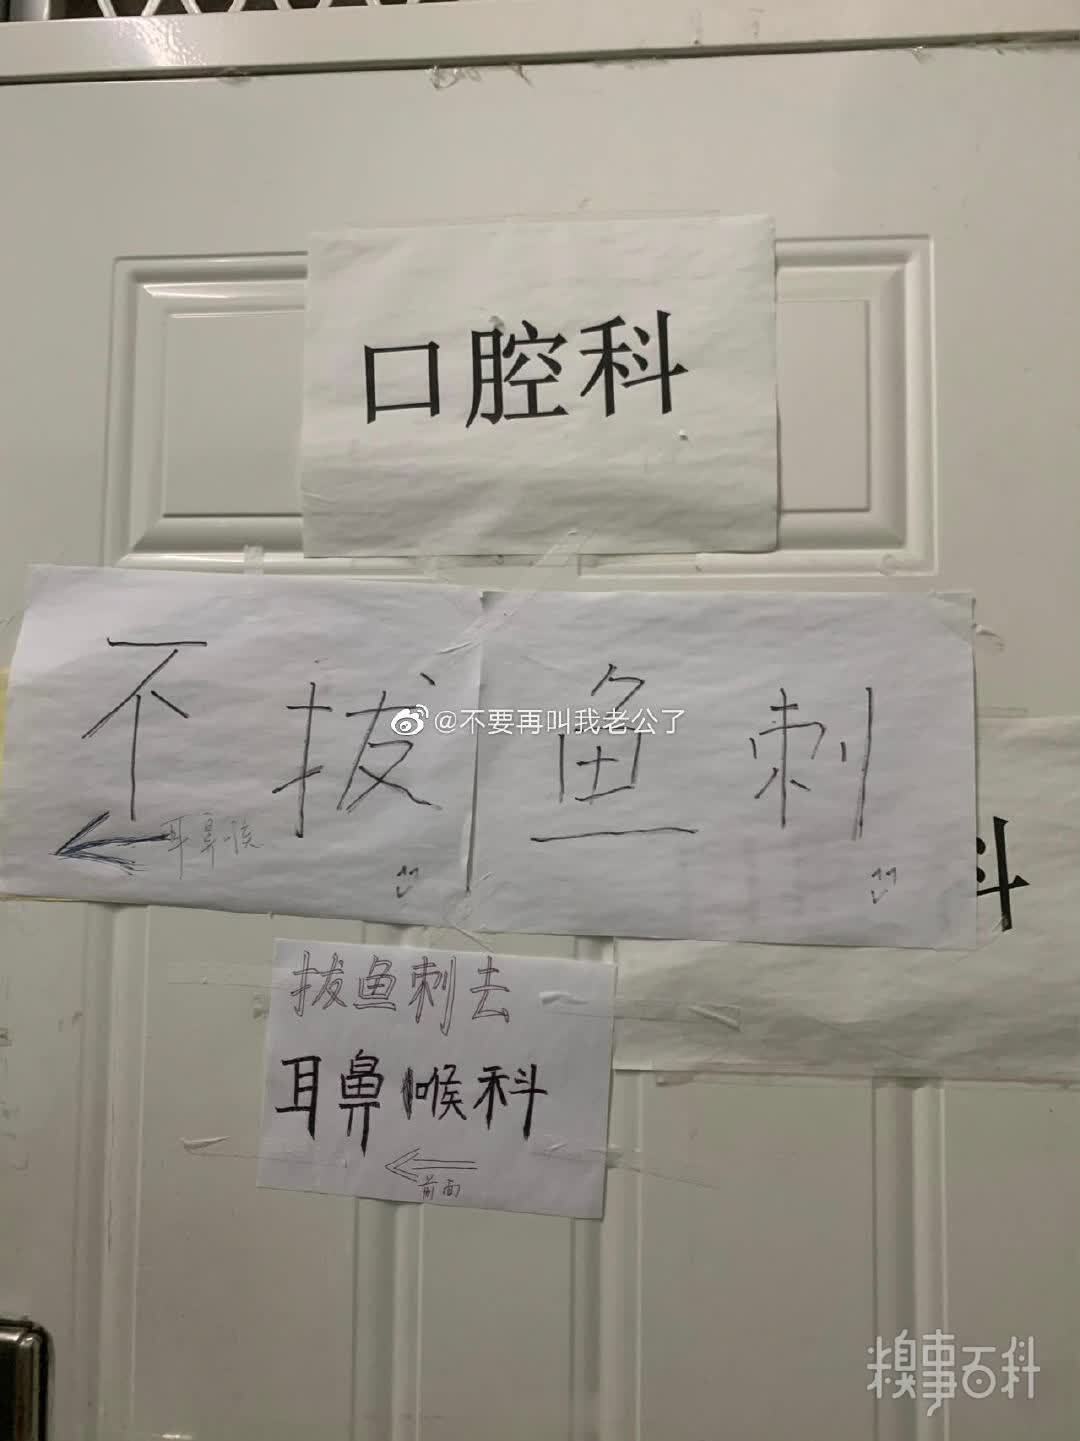 口腔科
不拔鱼刺
@不要再叫我老公了
耳鼻喉
科
拔鱼刺去
耳鼻喉科
前面
糗事百科